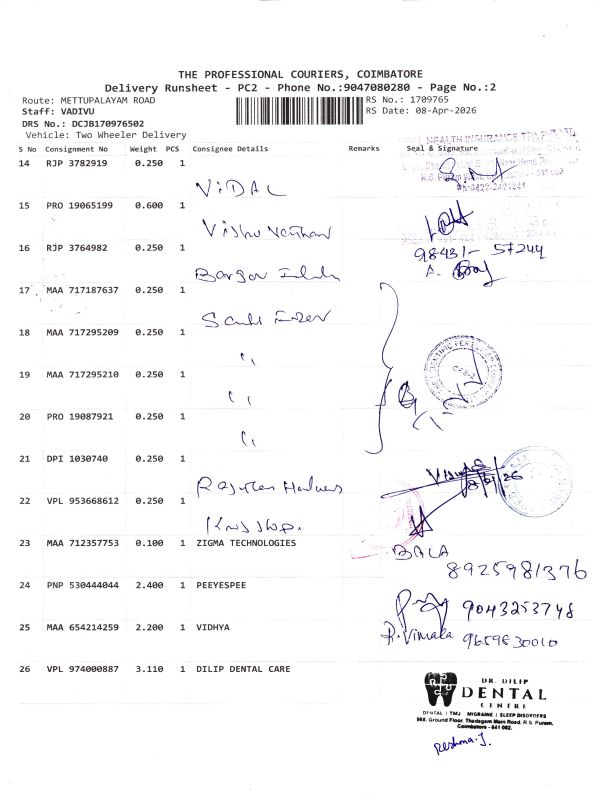 THE PROFESSIONAL COURIERS, COIMBATORE
Delivery Runsheet - PC2 - Phone No.:9047080280 - Page No.:2
Route: METTUPALAYAM ROAD
RS No.: 1709765
Staff: VADIVU
RS Date: 08-Apr-2026
DRS No.: DCJB170976502
Vehicle: Two Wheeler Delivery
S No Consignment No Weight PCS Consignee Details Remarks Seal & Signature
14 RJP 3782919 0.250 1
VIDAL
15 PRO 19065199 0.600 1
Vishnu
16 RJP 3764982 0.250 1
98431-
A.
17 MAA 717187637 0.250 1
18 MAA 717295209 0.250 1
"
19 MAA 717295210 0.250 1
"
20 PRO 19087921 0.250 1
"
21 DPI 1030740 0.250 1
22 VPL 953668612 0.250 1
23 MAA 712357753 0.100 1 ZIGMA TECHNOLOGIES
BALA
8925981376
24 PNP 530444044 2.400 1 PEEYESPEE
9043253748
25 MAA 654214259 2.200 1 VIDHYA
R. Vimala 9659830010
26 VPL 974000887 3.110 1 DILIP DENTAL CARE
DR. DILIP
DENTAL
CENTRE
DENTAL / TMJ MIGRAINE / SLEEP DISORDERS
568, Ground Floor, Thadagam Main Road, R.S. Puram,
Coimbatore - 641 002.
Reshma.J.